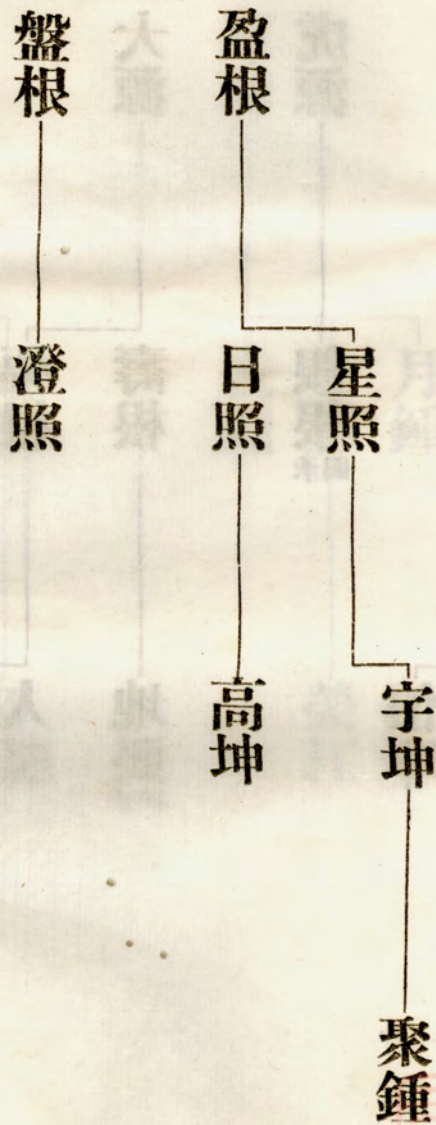 盈根
星照
日照
宇坤
高坤
聚鍾
盤根
澄照